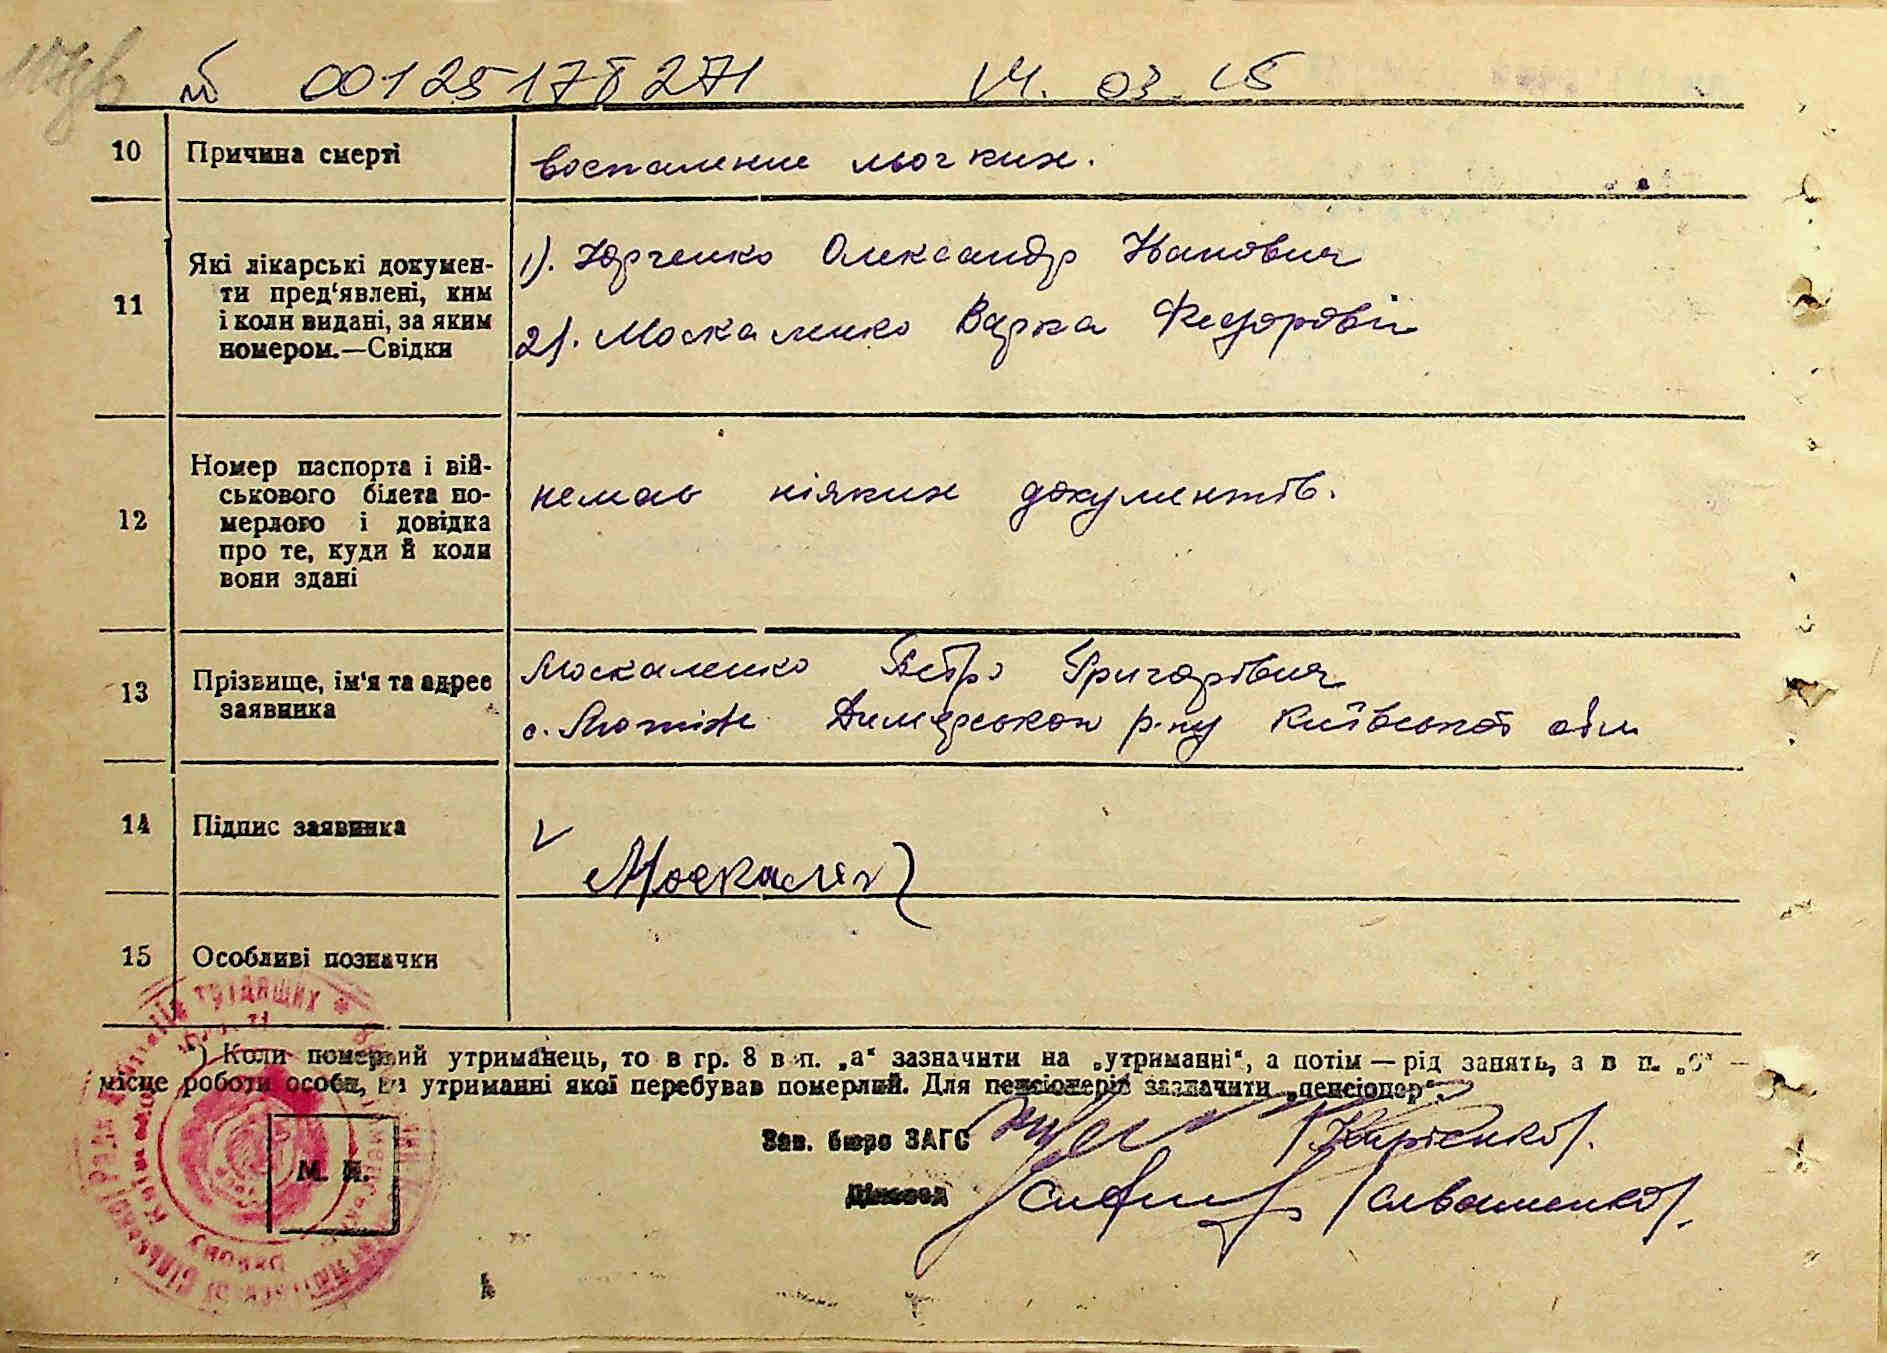 № 00125178271 14.03.15
10 Причина смерті
воспаление льогких.
11 Які лікарські докумен-
ти пред'явлені, ким
і коли видані, за яким
номером.—Свідки
1). Юрченко Олександр Іванович
2). Москаленко Варка Федорівн
12 Номер паспорта і вій-
ськового білета по-
мерлого і довідка
про те, куди й коли
вони здані
немає ніяких документів.
13 Прізвище, ім'я та адрес
заявника
Москаленко Петро Григорівич
с. Лютіж Димерського р-ну Київської обл
14 Підпис заявника
Москален
15 Особливі позначки
*) Коли померлий утриманець, то в гр. 8 в п. „а" зазначити на „утриманні", а потім — рід занять, а в п. „б" —
місце роботи особи, на утриманні якої перебував померлий. Для пенсіонерів зазначити „пенсіонер".
Зав. бюро ЗАГС
Діловод
М. П.
трудящих